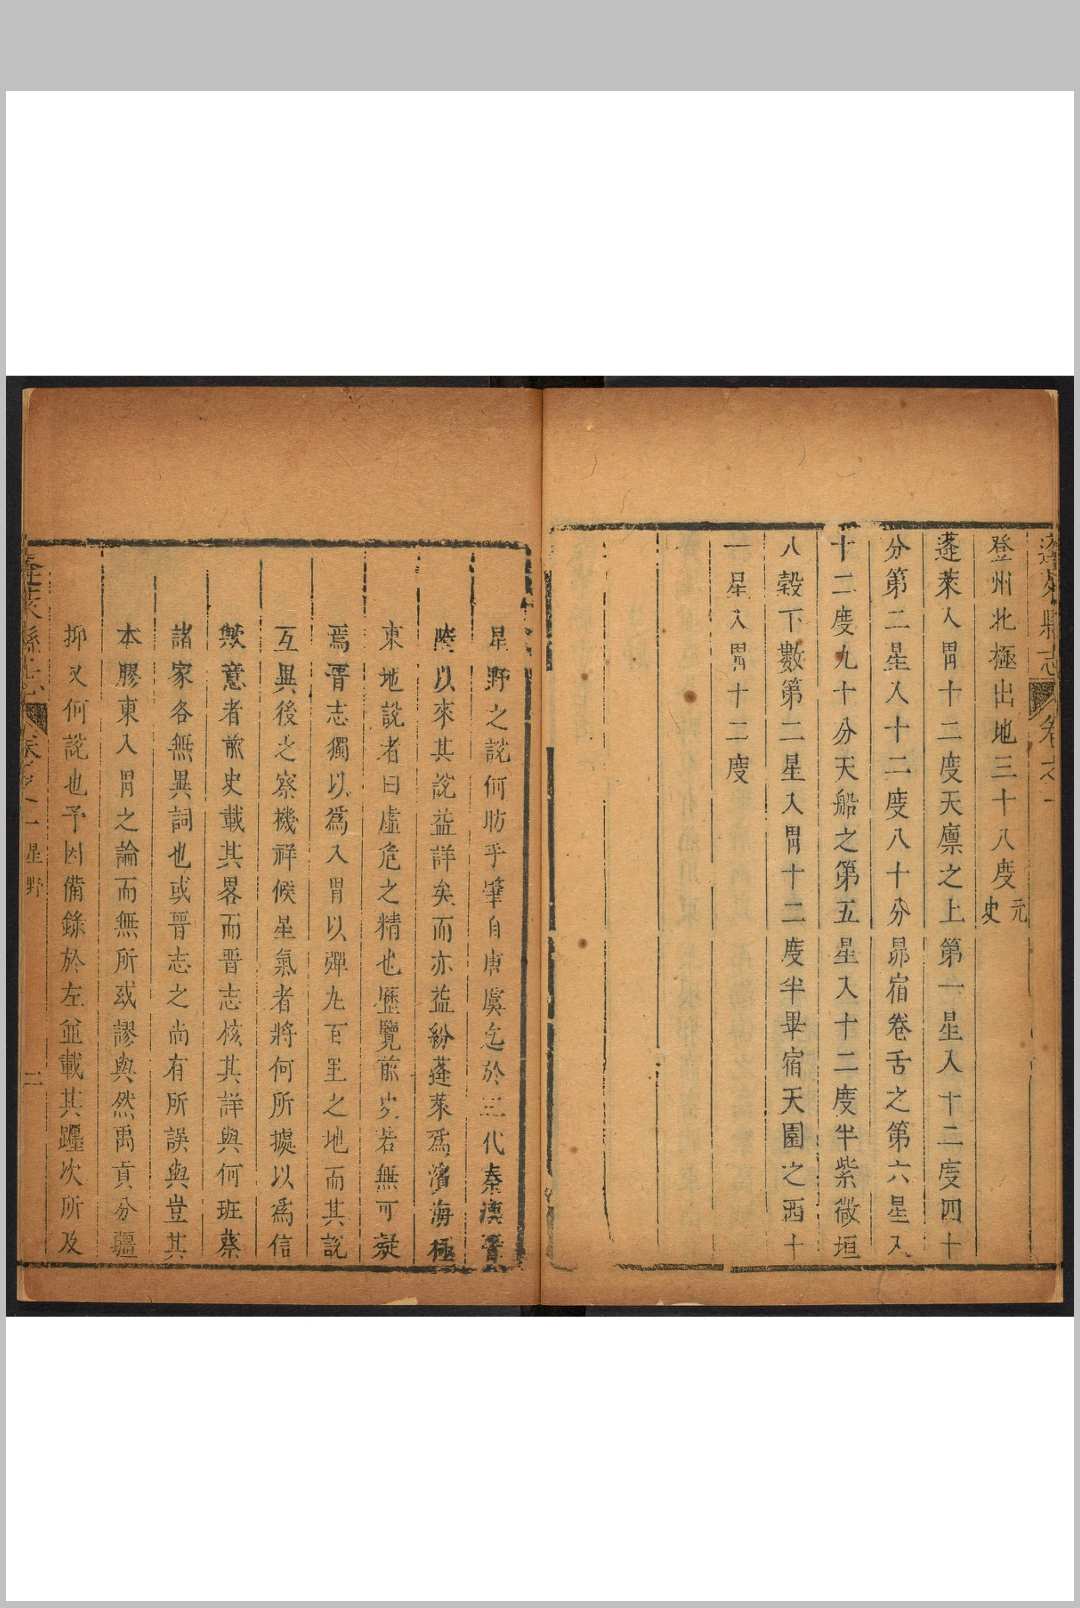 蓬萊縣志
卷之一
登州北極出地三十八度元史
蓬萊入胃十二度天廩之上第一星入十二度四十
分第二星入十二度八十分昴宿卷舌之第六星入
十二度九十分天船之第五星入十二度半紫微垣
八穀下數第二星入胃十二度半畢宿天園之西十
一星入胃十二度
星野之說何昉乎肇自唐虞迄於三代秦漢晉
陸以來其說益詳矣而亦益紛蓬萊爲濱海極
東地說者曰虛危之精也歷覽前史若無可疑
焉晉志獨以爲入胃以彈丸百里之地而其說
互異後之察機祥候星氣者將何所據以爲信
歟意者前史載其畧而晉志核其詳與何班蔡
諸家各無異詞也或晉志之尚有所誤與豈其
本膠東入胃之論而無所或謬與然禹貢分疆
抑又何說也予因備錄於左並載其躔次所及
蓬萊縣志
卷之一
星野
二